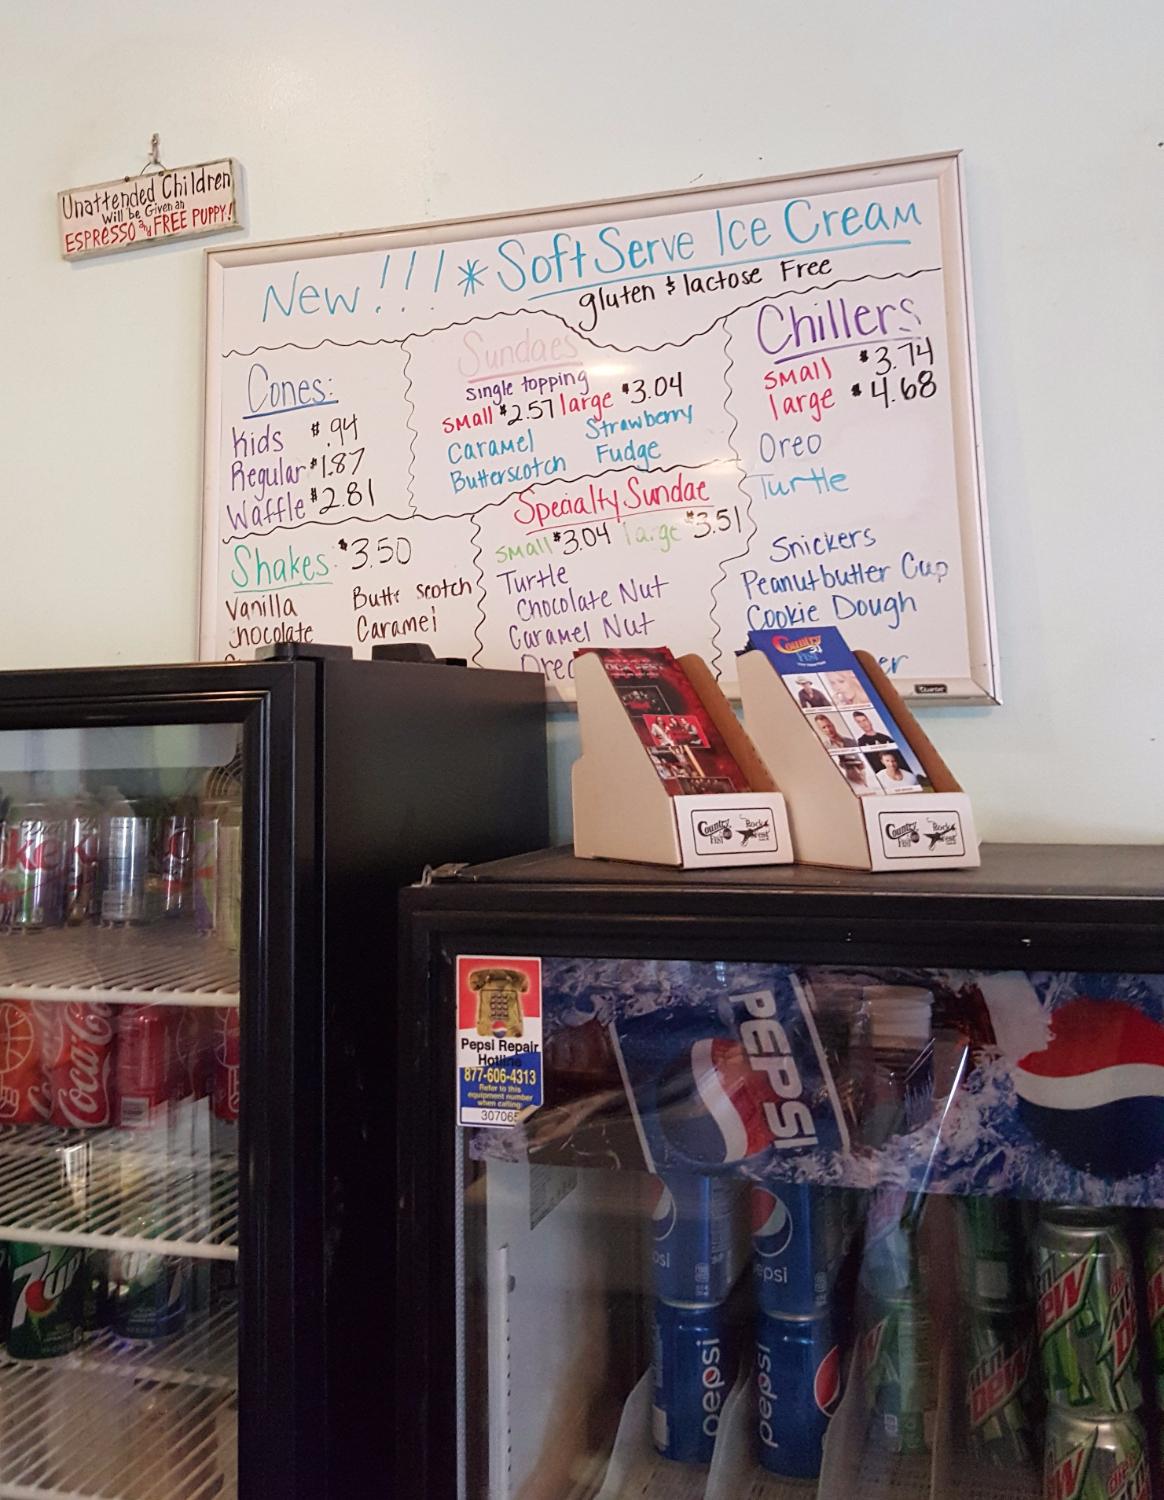 Unattended Children
will be Given an
ESPRESSO and FREE PUPPY!
New!!! * Soft Serve Ice Cream
gluten & lactose Free
Cones:
Kids $.94
Regular $1.87
Waffle $2.81
Sundaes
single topping
small $2.57 large $3.04
Caramel Strawberry
Butterscotch Fudge
Chillers
small $3.74
large $4.68
Oreo
Turtle
Snickers
Peanutbutter Cup
Cookie Dough
er
Shakes: $3.50
Vanilla Butterscotch
chocolate Caramel
Specialty Sundae
small $3.04 large $3.51
Turtle
Chocolate Nut
Caramel Nut
Oreo
Country
Fest
Country
Fest
Rock
Fest
Country
Fest
Rock
Fest
Pepsi Repair
Hotline
877-606-4313
Refer to this
equipment number
when calling:
307065
PEPSI
Coca-Cola
7up
pepsi
pepsi
pepsi
pepsi